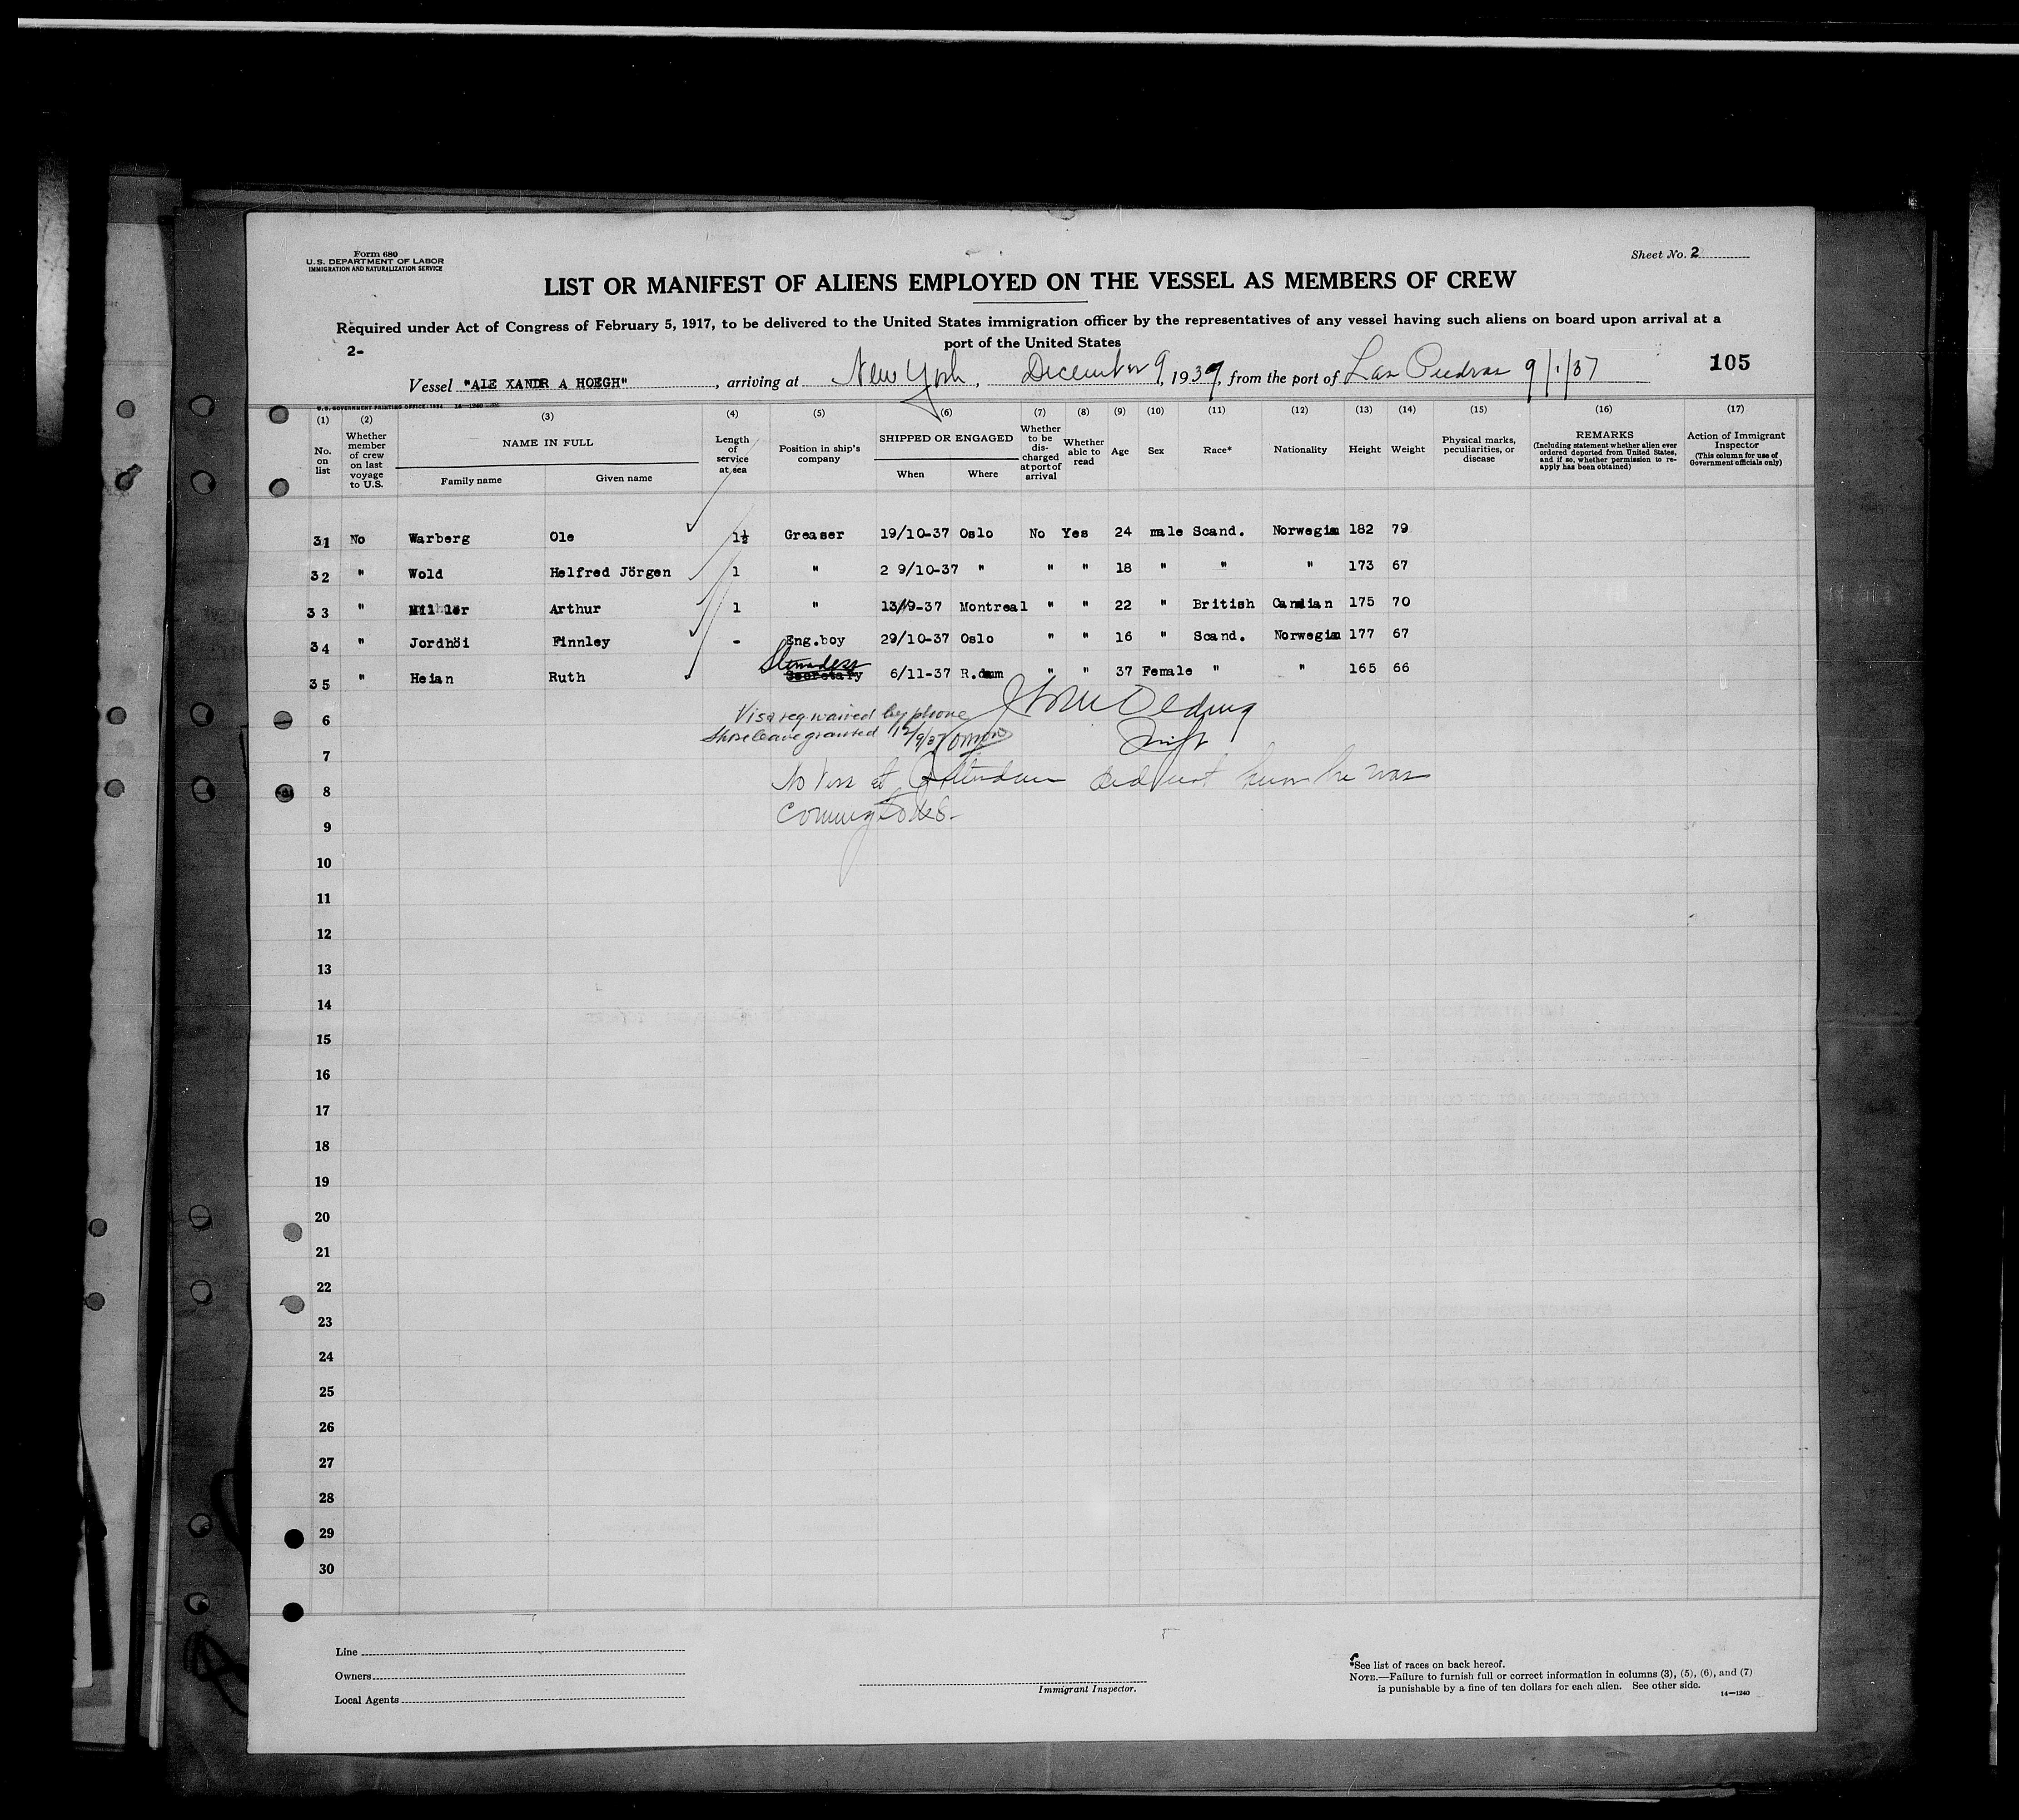 Form 680
U.S. DEPARTMENT OF LABOR
IMMIGRATION AND NATURALIZATION SERVICE
Sheet No. 2
LIST OR MANIFEST OF ALIENS EMPLOYED ON THE VESSEL AS MEMBERS OF CREW
Required under Act of Congress of February 5, 1917, to be delivered to the United States immigration officer by the representatives of any vessel having such aliens on board upon arrival at a
port of the United States
2-
105
Vessel "ALE XANDR A HOEGH", arriving at New York, December 9, 1937, from the port of Las Piedras 9/1/37
U.S. GOVERNMENT PRINTING OFFICE: 1934 14—1240
(1) (2) (3) (4) (5) (6) (7) (8) (9) (10) (11) (12) (13) (14) (15) (16) (17)
No. on list
Whether member of crew on last voyage to U.S.
NAME IN FULL
Family name
Given name
Length of service at sea
Position in ship's company
SHIPPED OR ENGAGED
When
Where
Whether to be discharged at port of arrival
Whether able to read
Age
Sex
Race*
Nationality
Height
Weight
Physical marks, peculiarities, or disease
REMARKS
(Including statement whether alien ever ordered deported from United States, and if so, whether permission to re-apply has been obtained)
Action of Immigrant Inspector
(This column for use of Government officials only)
31 No Warberg Ole 1½ Greaser 19/10-37 Oslo No Yes 24 male Scand. Norwegian 182 79
32 " Wold Helfred Jörgen 1 " 2 9/10-37 " " " 18 " " " 173 67
33 " Arthur 1 " 13/9-37 Montreal " " 22 " British Canadian 175 70
34 " Jordhöi Finnley - Eng.boy 29/10-37 Oslo " " 16 " Scand. Norwegian 177 67
Stewardess
35 " Heian Ruth Secretary 6/11-37 R.dam " " 37 Female " " 165 66
6 Visa req waived by phone
Shore leave granted 12/9/37
7
No Visa at Rotterdam did not know he was
8
coming to U.S.
9
10
11
12
13
14
15
16
17
18
19
20
21
22
23
24
25
26
27
28
29
30
Line
Owners
Local Agents
Immigrant Inspector.
*See list of races on back hereof.
NOTE.—Failure to furnish full or correct information in columns (3), (5), (6), and (7)
is punishable by a fine of ten dollars for each alien. See other side.
14—1240